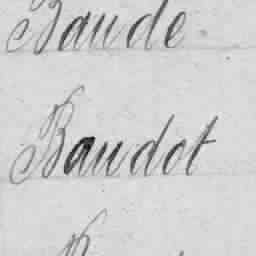 Baude
Baudot